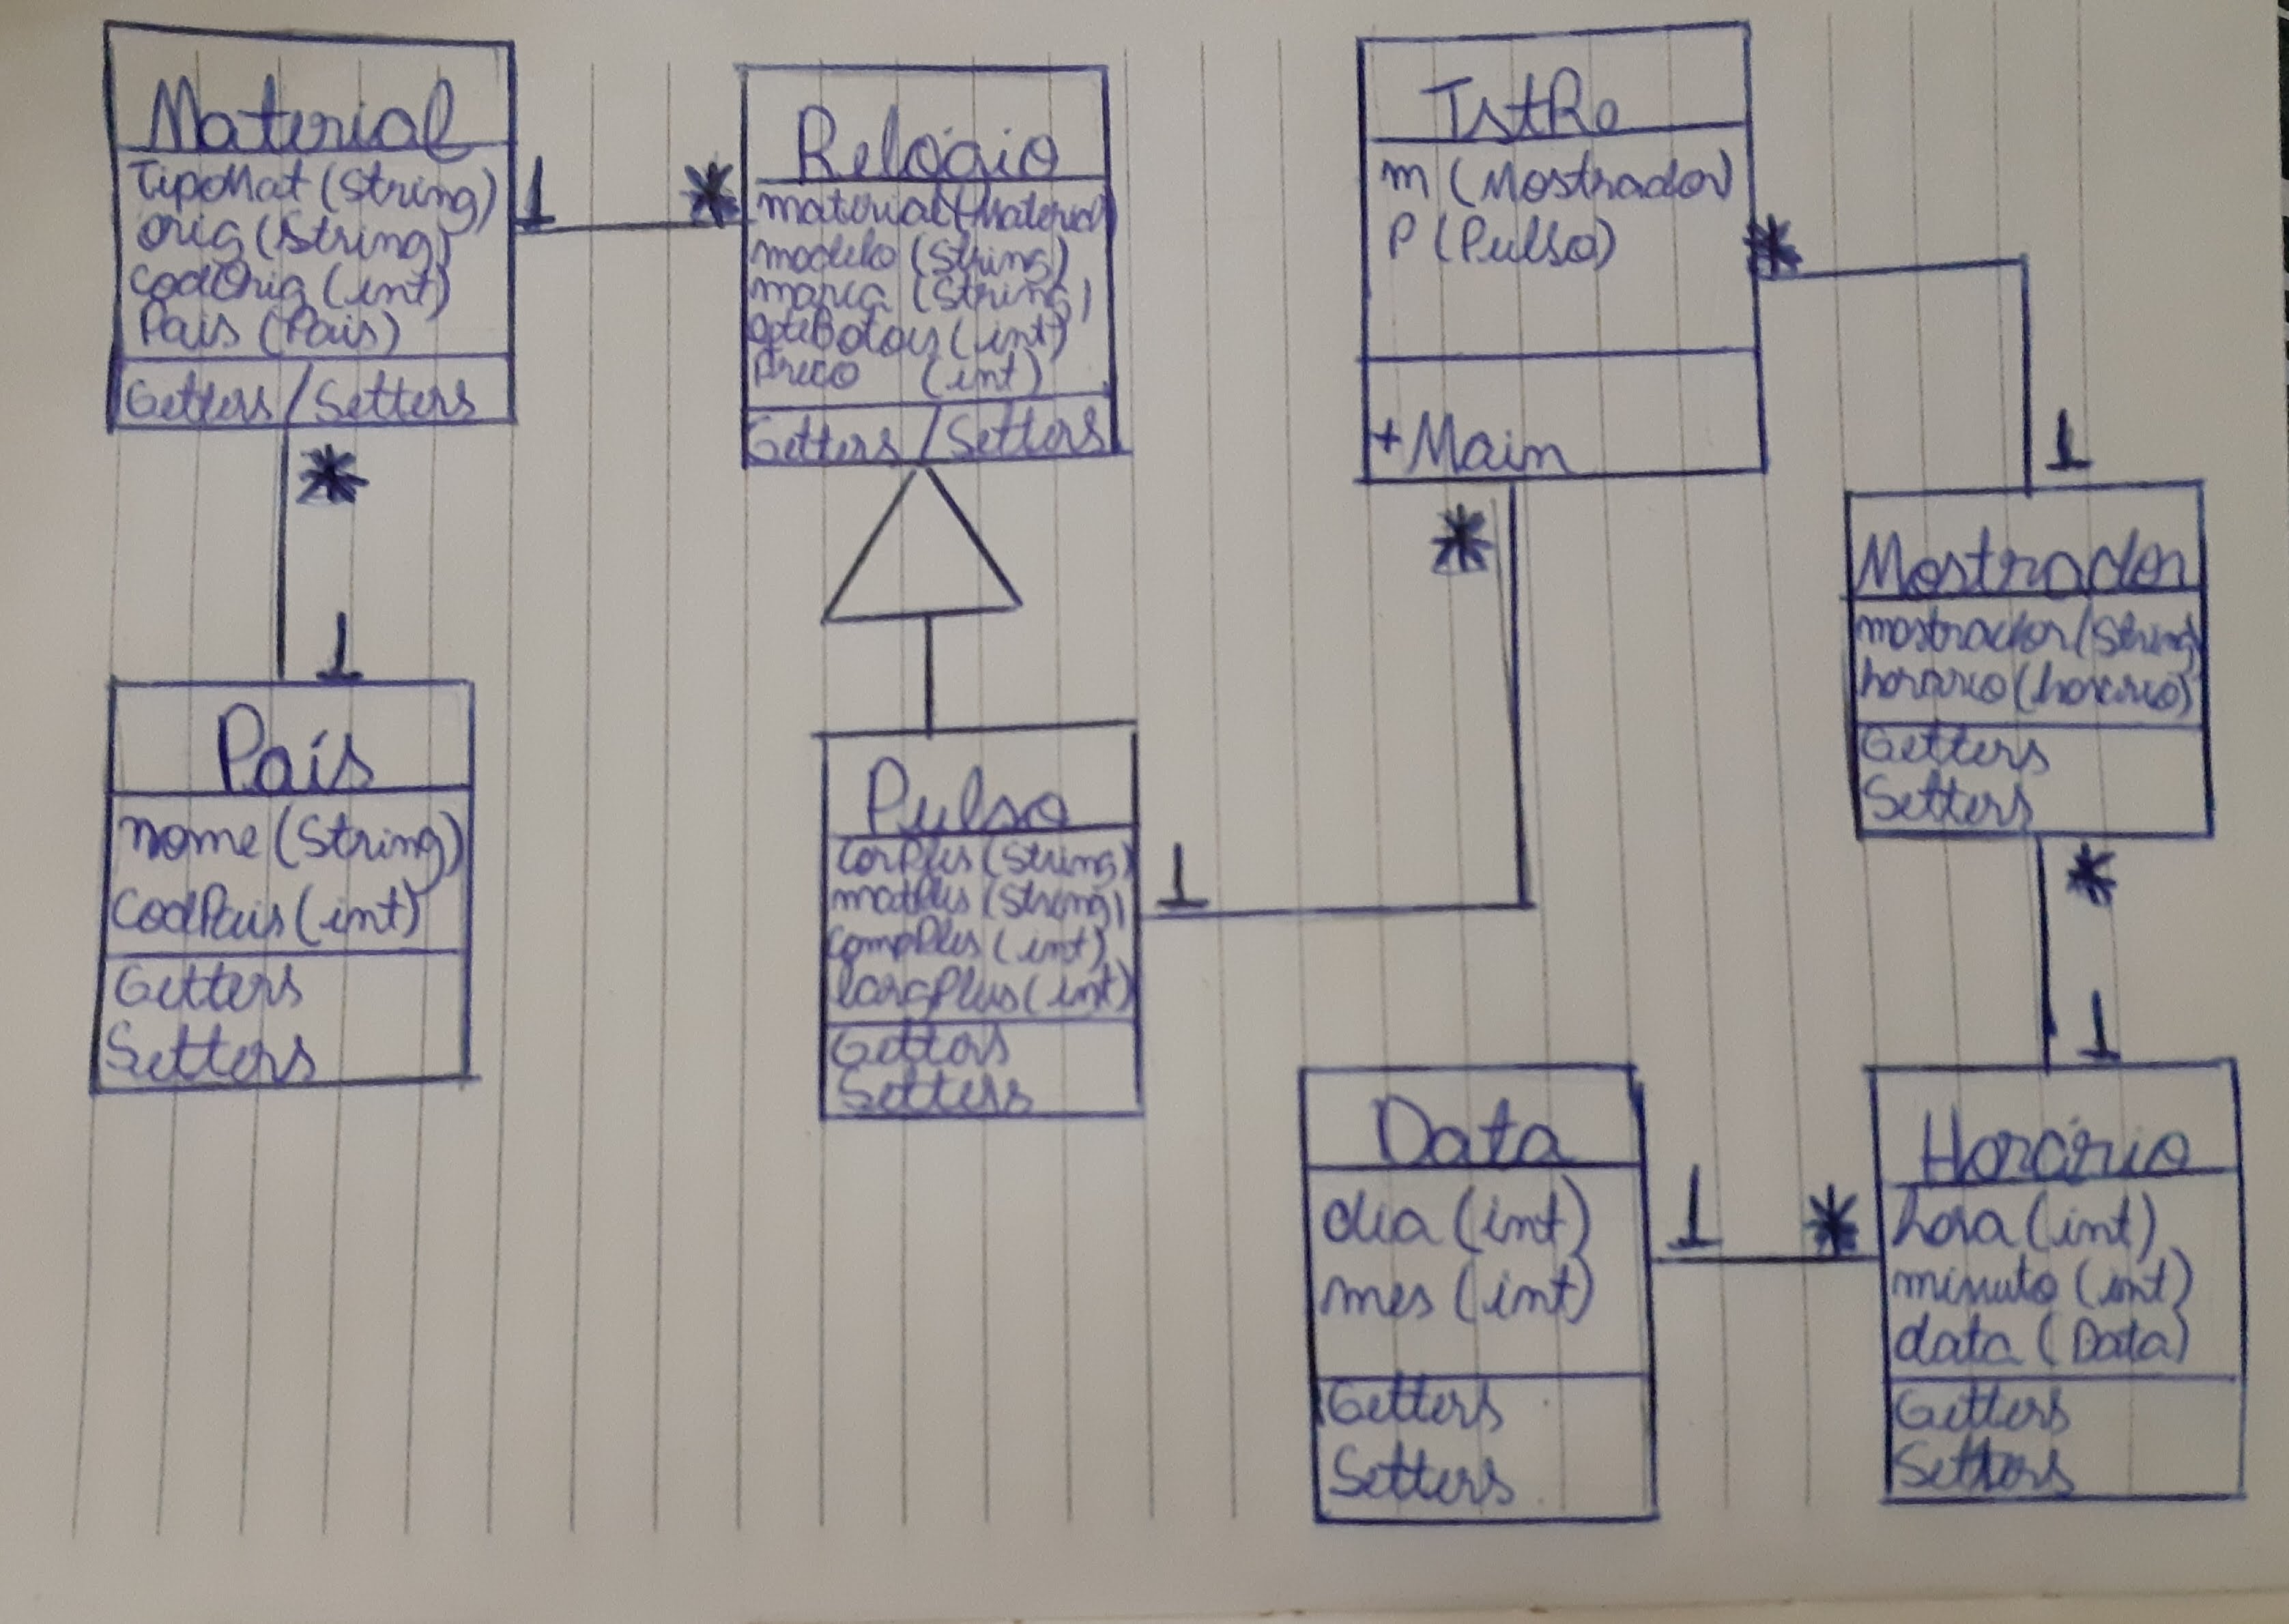 Material
TipoMat (String)
orig (String)
codOrig (int)
Pais (Pais)
Getters / Setters
1
*
Relógio
material (Material)
modelo (String)
marca (String)
qteBotoes (int)
Preco (int)
Getters / Setters
TstRe
m (Mostrador)
P (Pulso)
+Main
*
1
*
1
*
País
nome (String)
CodPais (int)
Getters
Setters
Pulso
corPus (String)
matPus (String)
compPus (int)
largPlus (int)
Getters
Setters
1
Mostrador
mostrador (String)
horario (horario)
Getters
Setters
*
1
Data
dia (int)
mes (int)
Getters
Setters
1
*
Horário
hora (int)
minuto (int)
data (Data)
Getters
Setters